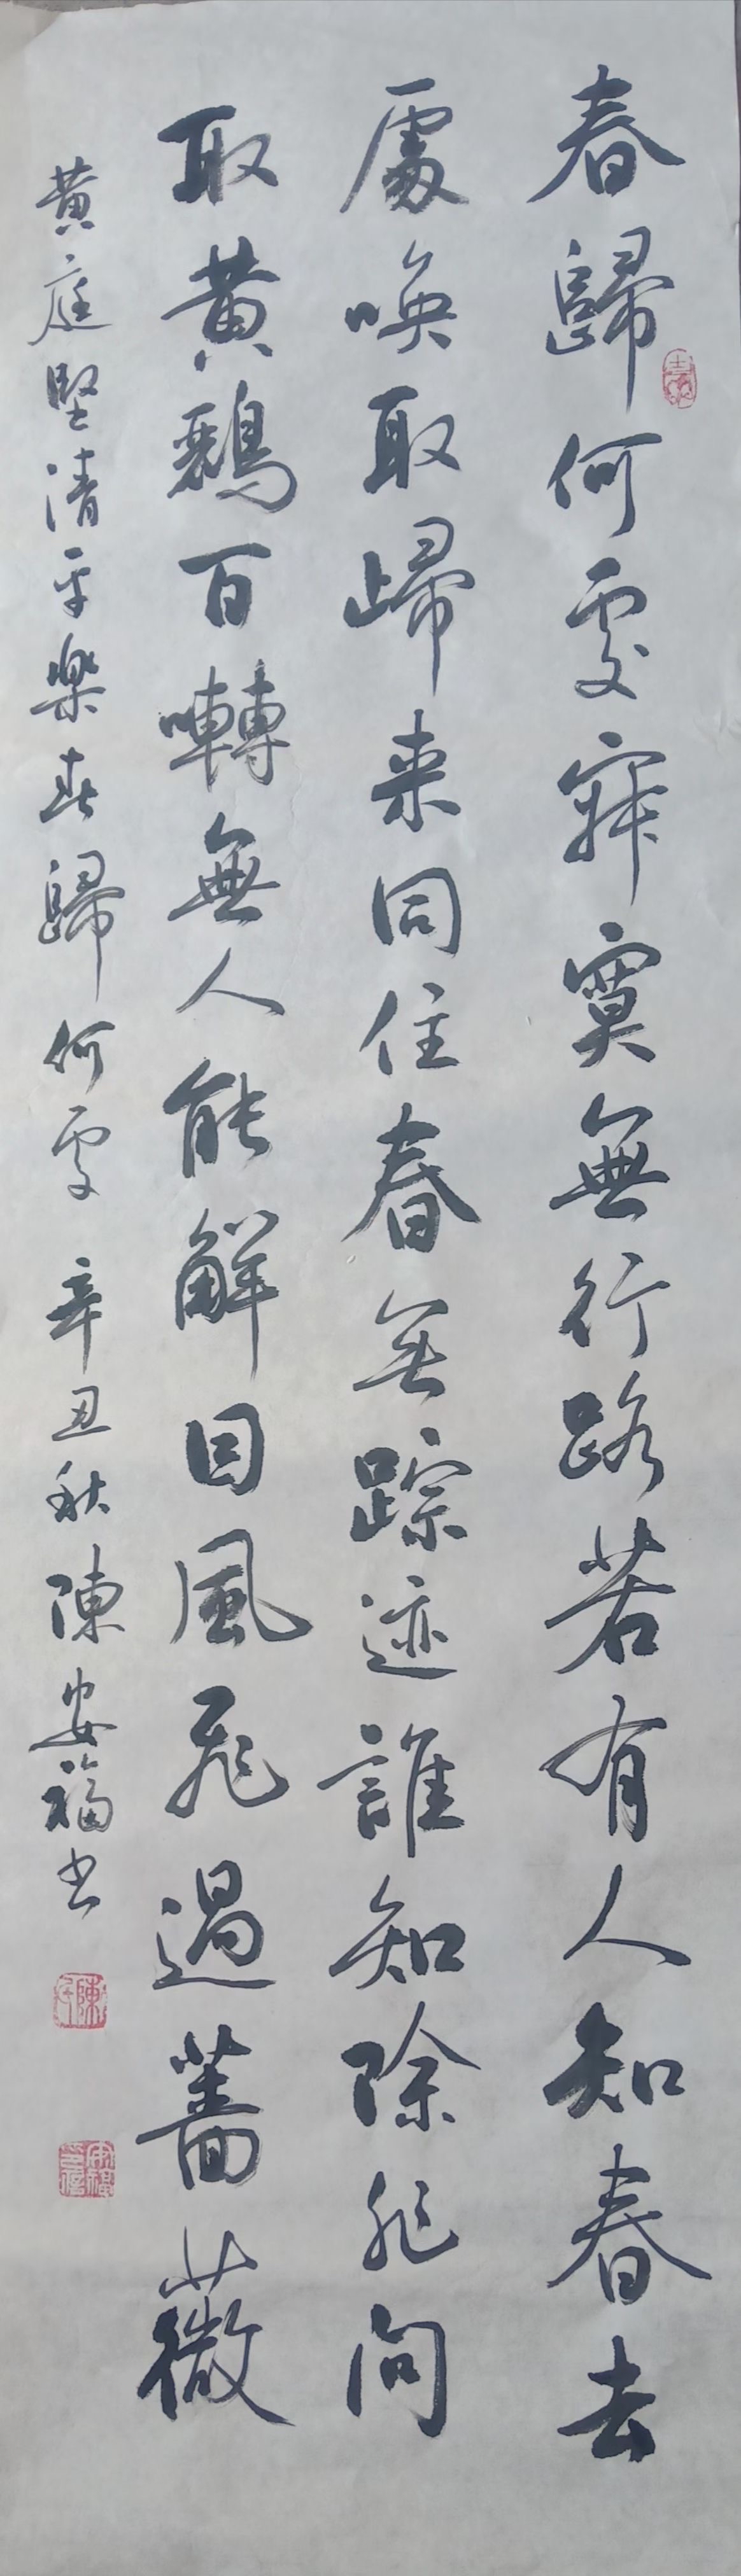 春歸何處寂寞無行路若有人知春去
處喚取歸来同住春無踪迹誰知除非问
取黄鸝百囀無人能解因風飛過薔薇
黄庭堅清平樂春歸何處 辛丑秋陳安福书